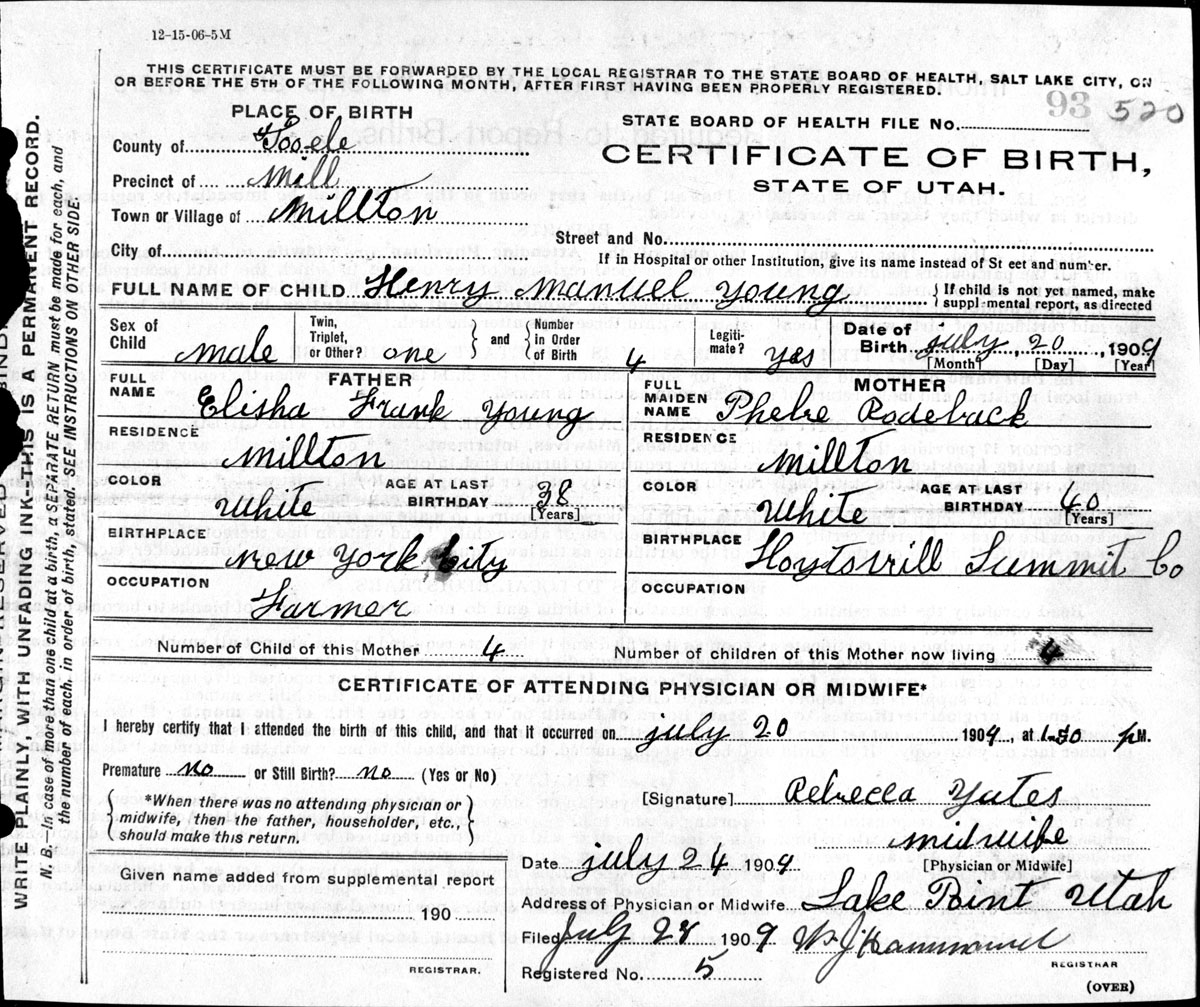 12-15-06-5M
THIS CERTIFICATE MUST BE FORWARDED BY THE LOCAL REGISTRAR TO THE STATE BOARD OF HEALTH, SALT LAKE CITY, ON
OR BEFORE THE 5TH OF THE FOLLOWING MONTH, AFTER FIRST HAVING BEEN PROPERLY REGISTERED.
PLACE OF BIRTH
County of Tooele
Precinct of Mill
Town or Village of Millton
City of
93 520
STATE BOARD OF HEALTH FILE No.
CERTIFICATE OF BIRTH,
STATE OF UTAH.
Street and No.
If in Hospital or other Institution, give its name instead of St eet and number.
FULL NAME OF CHILD Henry Manuel Young } If child is not yet named, make
suppl-mental report, as directed
Sex of Child male
Twin, Triplet, or Other? one } and { Number in Order of Birth 4
Legiti-mate? yes
Date of Birth July, 20, 1909
[Month] [Day] [Year]
FATHER
FULL NAME Elisha Frank Young
RESIDENCE Millton
COLOR White AGE AT LAST BIRTHDAY 38 [Years]
BIRTHPLACE New York City
OCCUPATION Farmer
MOTHER
FULL MAIDEN NAME Phebe Rodeback
RESIDENCE Millton
COLOR White AGE AT LAST BIRTHDAY 40 [Years]
BIRTHPLACE Hoytsvill Summit Co
OCCUPATION
Number of Child of this Mother 4 Number of children of this Mother now living 4
CERTIFICATE OF ATTENDING PHYSICIAN OR MIDWIFE*
I hereby certify that I attended the birth of this child, and that it occurred on July 20 1909, at 1-50 PM.
Premature no or Still Birth? no (Yes or No)
{ *When there was no attending physician or
midwife, then the father, householder, etc.,
should make this return. }
[Signature] Rebrecca Yates
midwife
[Physician or Midwife]
Date July 24 1909
Address of Physician or Midwife Lake Point Utah
Given name added from supplemental report
190
REGISTRAR.
Filed July 28 1909
REGISTRAR
Registered No. 5
(OVER)
WRITE PLAINLY WITH UNFADING INK-THIS IS A PERMANENT RECORD.
N. B.-In case of more than one child at a birth, a SEPARATE RETURN must be made for each, and
the number of each, in order of birth, stated. SEE INSTRUCTIONS ON OTHER SIDE.